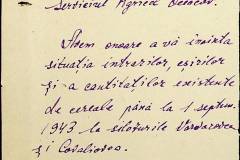 Serviciul Agricol Oceacov.
Avem onoare a vă înainta
situația intrărilor, eșirilor
și a cantităților existente
de cereale până la 1 septem.
1943 la silozurile Varvarovca
și Covaliovca